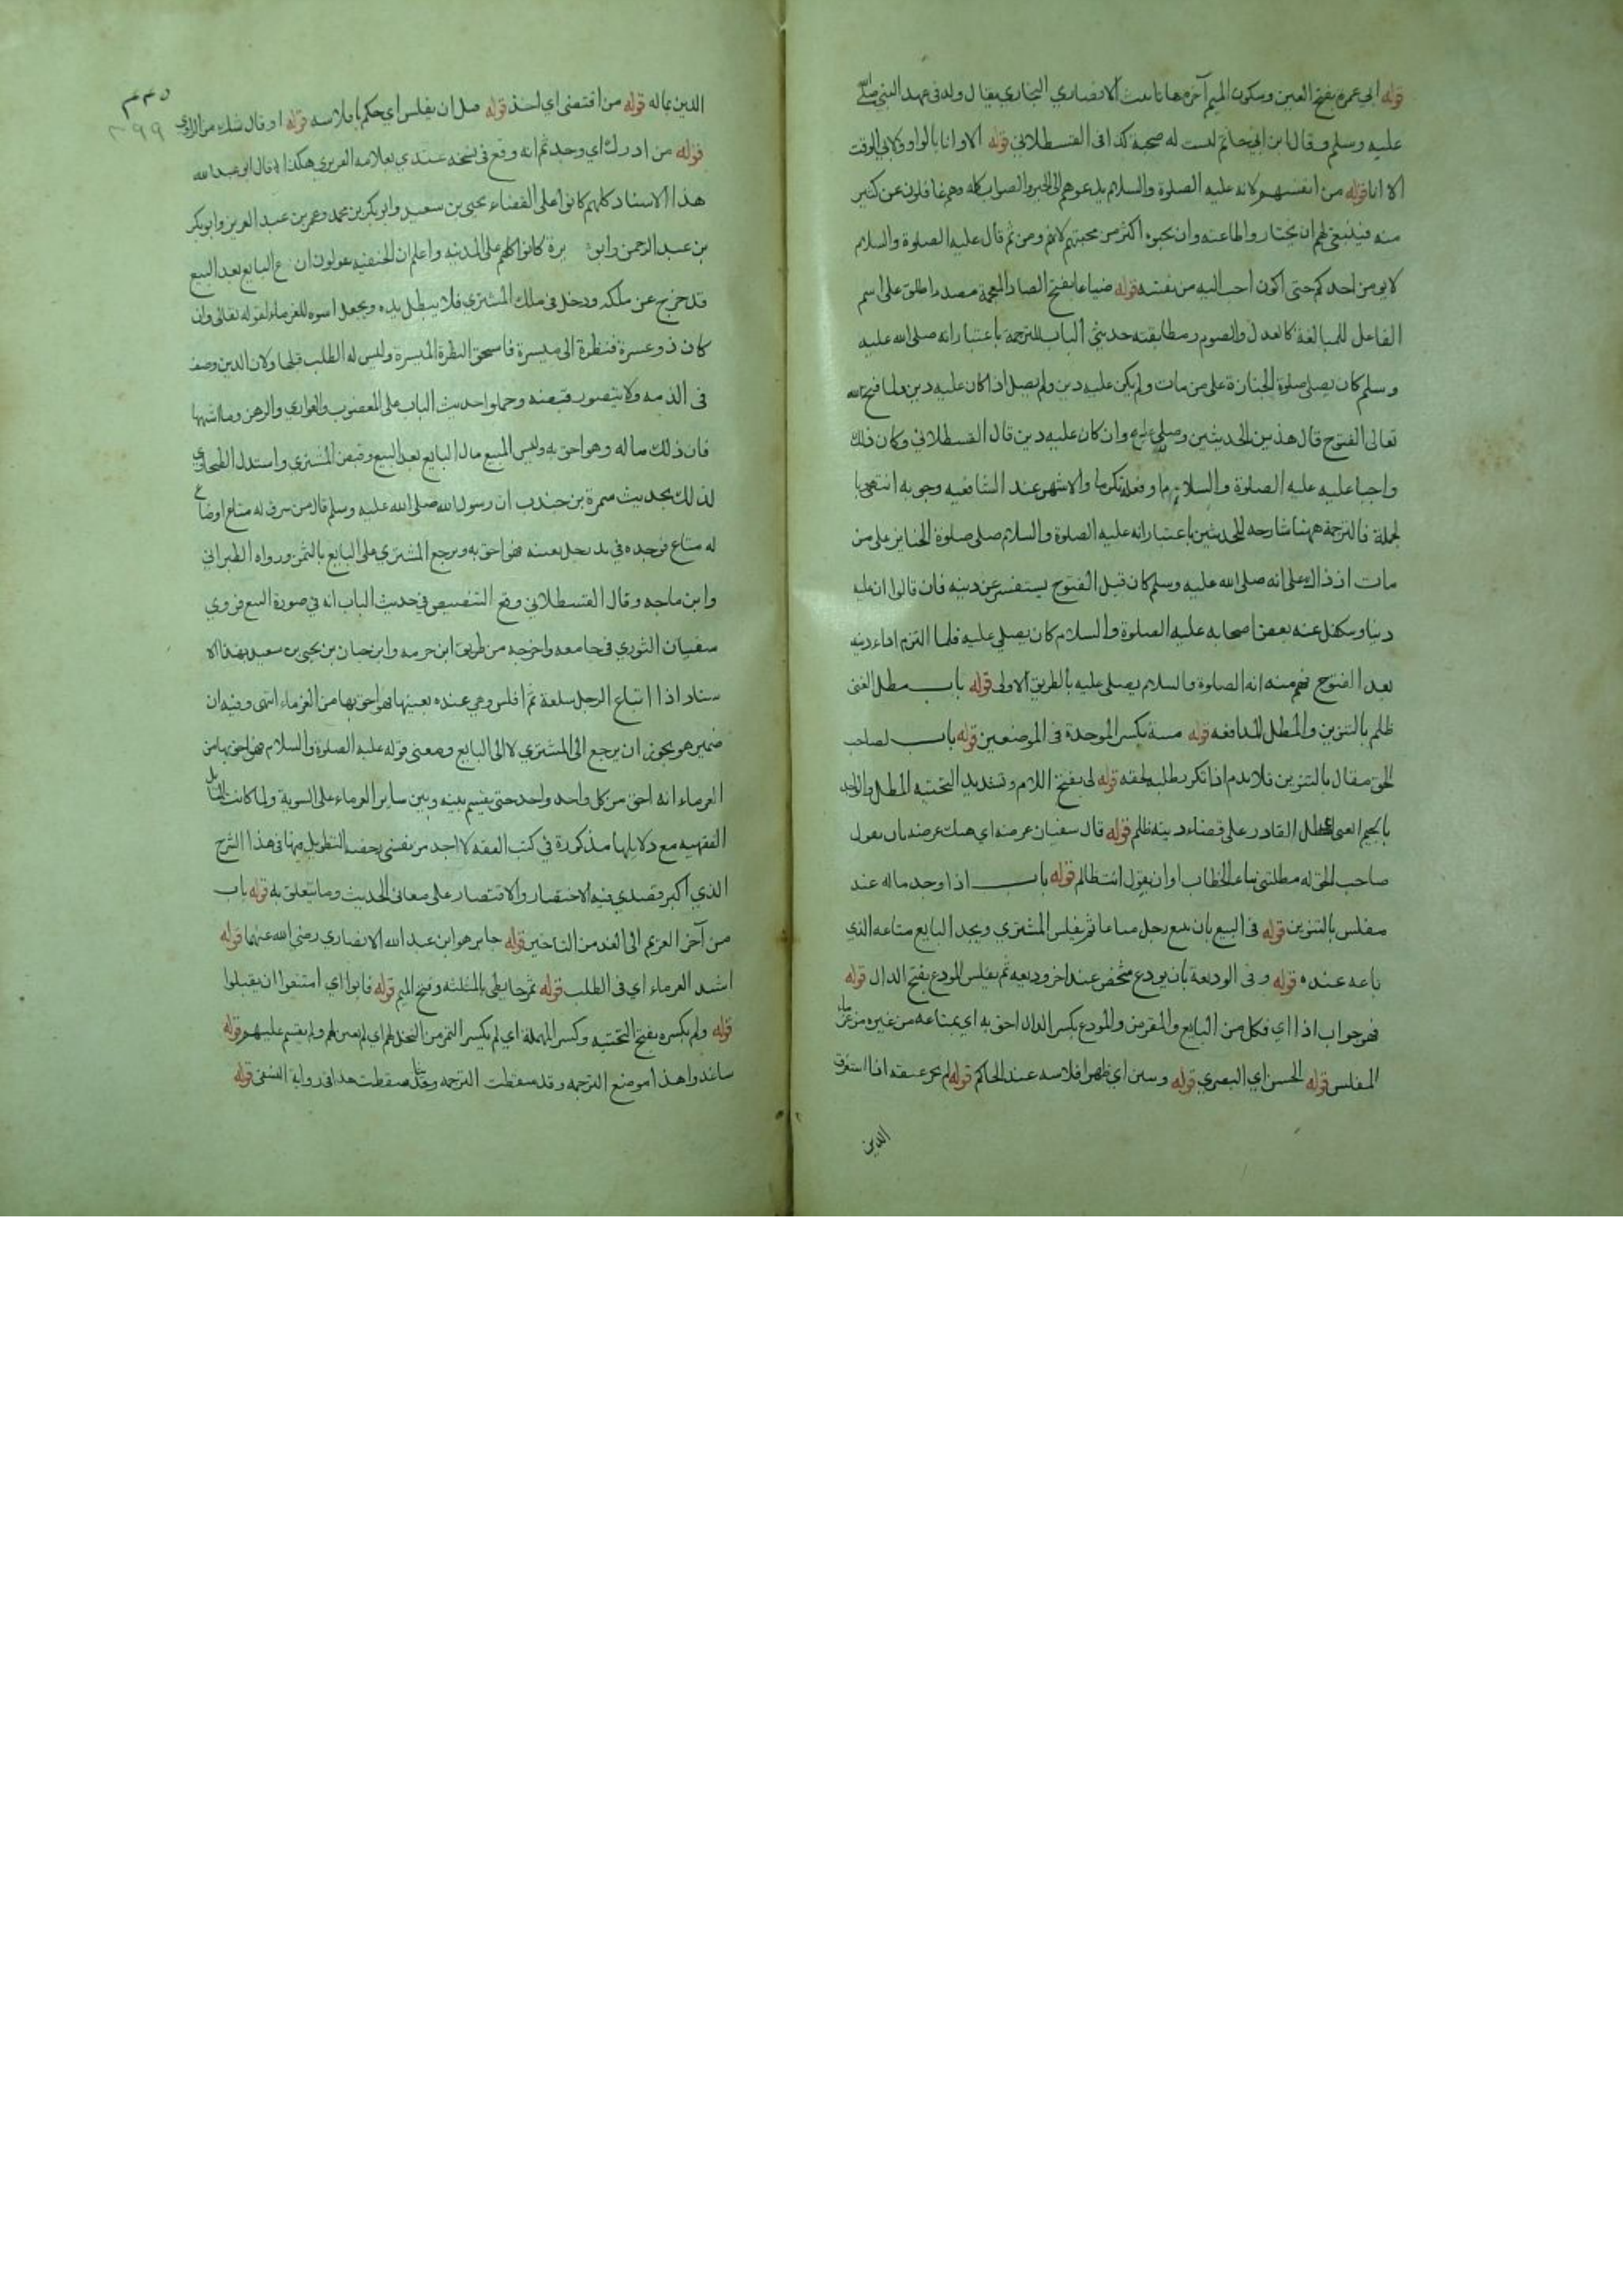 قوله ابي عمرة بفتح العين وسكون الميم آخره هاء تانيث الانصاري النجاري يقال ولد في عهد النبي صلى الله
عليه وسلم وقال ابن ابي حاتم ليست له صحبة كذا في القسطلاني قوله الا وانا بالواو ولابي الوقت
الا انا قوله من انفسهم لانه عليه الصلوة والسلام يدعوهم الى الخير والصواب كله وهم غافلون عن كثير
منه فينبغي لهم ان يختاروا طاعته وان يحبوه اكثر من محبتهم لانفسهم ومن ثم قال عليه الصلوة والسلام
لا يومن احدكم حتى اكون احب اليه من نفسه قوله ضياعا بفتح الضاد المعجمة مصدر اطلق على اسم
الفاعل للمبالغة كالعدل والصوم ومطابقته حديثي الباب للترجمة باعتبار انه صلى الله عليه
وسلم كان يصلي صلوة الجنازة على من مات ولم يكن عليه دين ولم يصل اذا كان عليه دين ولما فتح الله
تعالى الفتوح قال هذين الحديثين وصلى عليه وان كان عليه دين قال القسطلاني وكان ذلك
واجبا عليه عليه الصلوة والسلام او فعله تكرما والاشهر عند الشافعيه وجوبه انتهى با
لجملة فالترجمة ههنا شارحه للحديثين باعتبار انه عليه الصلوة والسلام صلى صلوة الجنايز على من
مات اذ ذاك على انه صلى الله عليه وسلم كان قبل الفتوح يستفسر عن دينه فان قالوا ان عليه
دينا وتكفل عنه بعض اصحابه عليه الصلوة والسلام كان يصلي عليه فلما التزم اداء دينه
بعد الفتوح فهم منه انه الصلوة والسلام يصلي عليه بالطريق الاولى قوله باب مطل الغني
ظلم بالتنوين والمطل المدافعه قوله بكسر الموحدة في الموضعين قوله باب لصاحب
الحق مقال بالتنوين فلا يذم اذا تكرر طلبه لحقه قوله لي بفتح اللام وتشديد التحتيه المطل والواجد
بالجيم الغني اي مطل القادر على قضاء دينه ظلم قوله قال سفيان عرضه اي هتك عرضه بان يقول
صاحب الحق له مطلتني بتاء الخطاب او ان يقول انت ظالم قوله باب اذا وجد ماله عند
مفلس بالتنوين قوله في البيع بان يبيع رجل متاعا ثم يفلس المشتري ويجد البايع متاعه الذي
باعه عنده قوله وفي الوديعة بان يودع شخص عند اخر وديعه ثم يفلس المودع بفتح الدال قوله
فهو جواب اذا اي فكل من البايع والمقرض والمودع بكسر الدال احق به اي بمتاعه من غيره من غرماء
المفلس قوله الحسن اي البصري قوله وتبين اي ظهر افلاسه عند الحاكم قوله لم يجز عتقه اذا استغرق
الدين
٣٩٩
الدين بماله قوله من اقتضى اي اخذ قوله قبل ان يفلس اي حكم بافلاسه قوله او قال شك من الراوي
قوله من ادرك اي وجد ثم انه وقع في نسخه عندي بعلامه الفربري هكذا قال ابو عبد الله
هذا الاسناد كلهم كانوا على القضاء يحيى بن سعيد وابو بكر بن محمد وعمر بن عبد العزيز وابو بكر
بن عبد الرحمن وابو هريرة كانوا كلهم على المدينه واعلم ان الحنفيه يقولون ان البايع بعد البيع
قد خرج عن ملكه ودخل في ملك المشتري فلا يبطل يده ويجعل اسوه للغرماء لقوله تعالى وان
كان ذو عسرة فنظرة الى ميسرة فاستحق النظرة الى ميسرة وليس له الطلب قبلها ولان الدين وصف
في الذمه ولا يتصور قبضه وحملوا حديث الباب على المغصوب والعواري والرهن وما اشبهها
فان ذلك ماله وهو احق به وليس المبيع مال البايع بعد البيع وقبض المشتري واستدل الطحاوي
لذلك بحديث سمرة بن جندب ان رسول الله صلى الله عليه وسلم قال من سرق له متاع او ضاع
له متاع فوجده في يد رجل بعينه فهو احق به ويرجع المشتري على البايع بالثمن ورواه الطبراني
وابن ماجه وقال القسطلاني وقع التنصيص في حديث الباب انه في صورة البيع فروي
سفيان الثوري في جامعه واخرجه من طريقه ابن خزيمه وابن حبان عن يحيى بن سعيد بهذا الا
سناد اذا ابتاع الرجل سلعة ثم افلس وهي عنده بعينها فهو احق بها من الغرماء انتهى وفيه ان
ضمير هو يجوز ان يرجع الى المشتري لا الى البايع ومعنى قوله عليه الصلوة والسلام فهو احق بها من
الغرماء انه احق من كل واحد واحد حتى يقسم بينه وبين ساير الغرماء على السوية ولما كانت المسايل
الفقهيه مع دلايلها مذكورة في كتب الفقه لا اجد من نفسي رخصة التطويل منها في هذا الشرح
الذي اكبر قصدي فيه الاختصار والاقتصار على معاني الحديث وما يتعلق به قوله باب
من آخر الغريم الى الغد من التاخير قوله جابر هو ابن عبد الله الانصاري رضي الله عنهما قوله
اشتد الغرماء اي في الطلب قوله ثمر حايطي بالمثلثه وفتح الميم قوله فابوا اي امتنعوا ان يقبلوا
قوله ولم يكسره بفتح التحتيه وكسر المهملة اي لم يكسر الثمر من النخل لهم اي لم يعين لهم ولم يقسم عليهم قوله
ساغدوا هذا موضع الترجمه وقد سقطت الترجمه وحديثها في رواية النسفي قوله